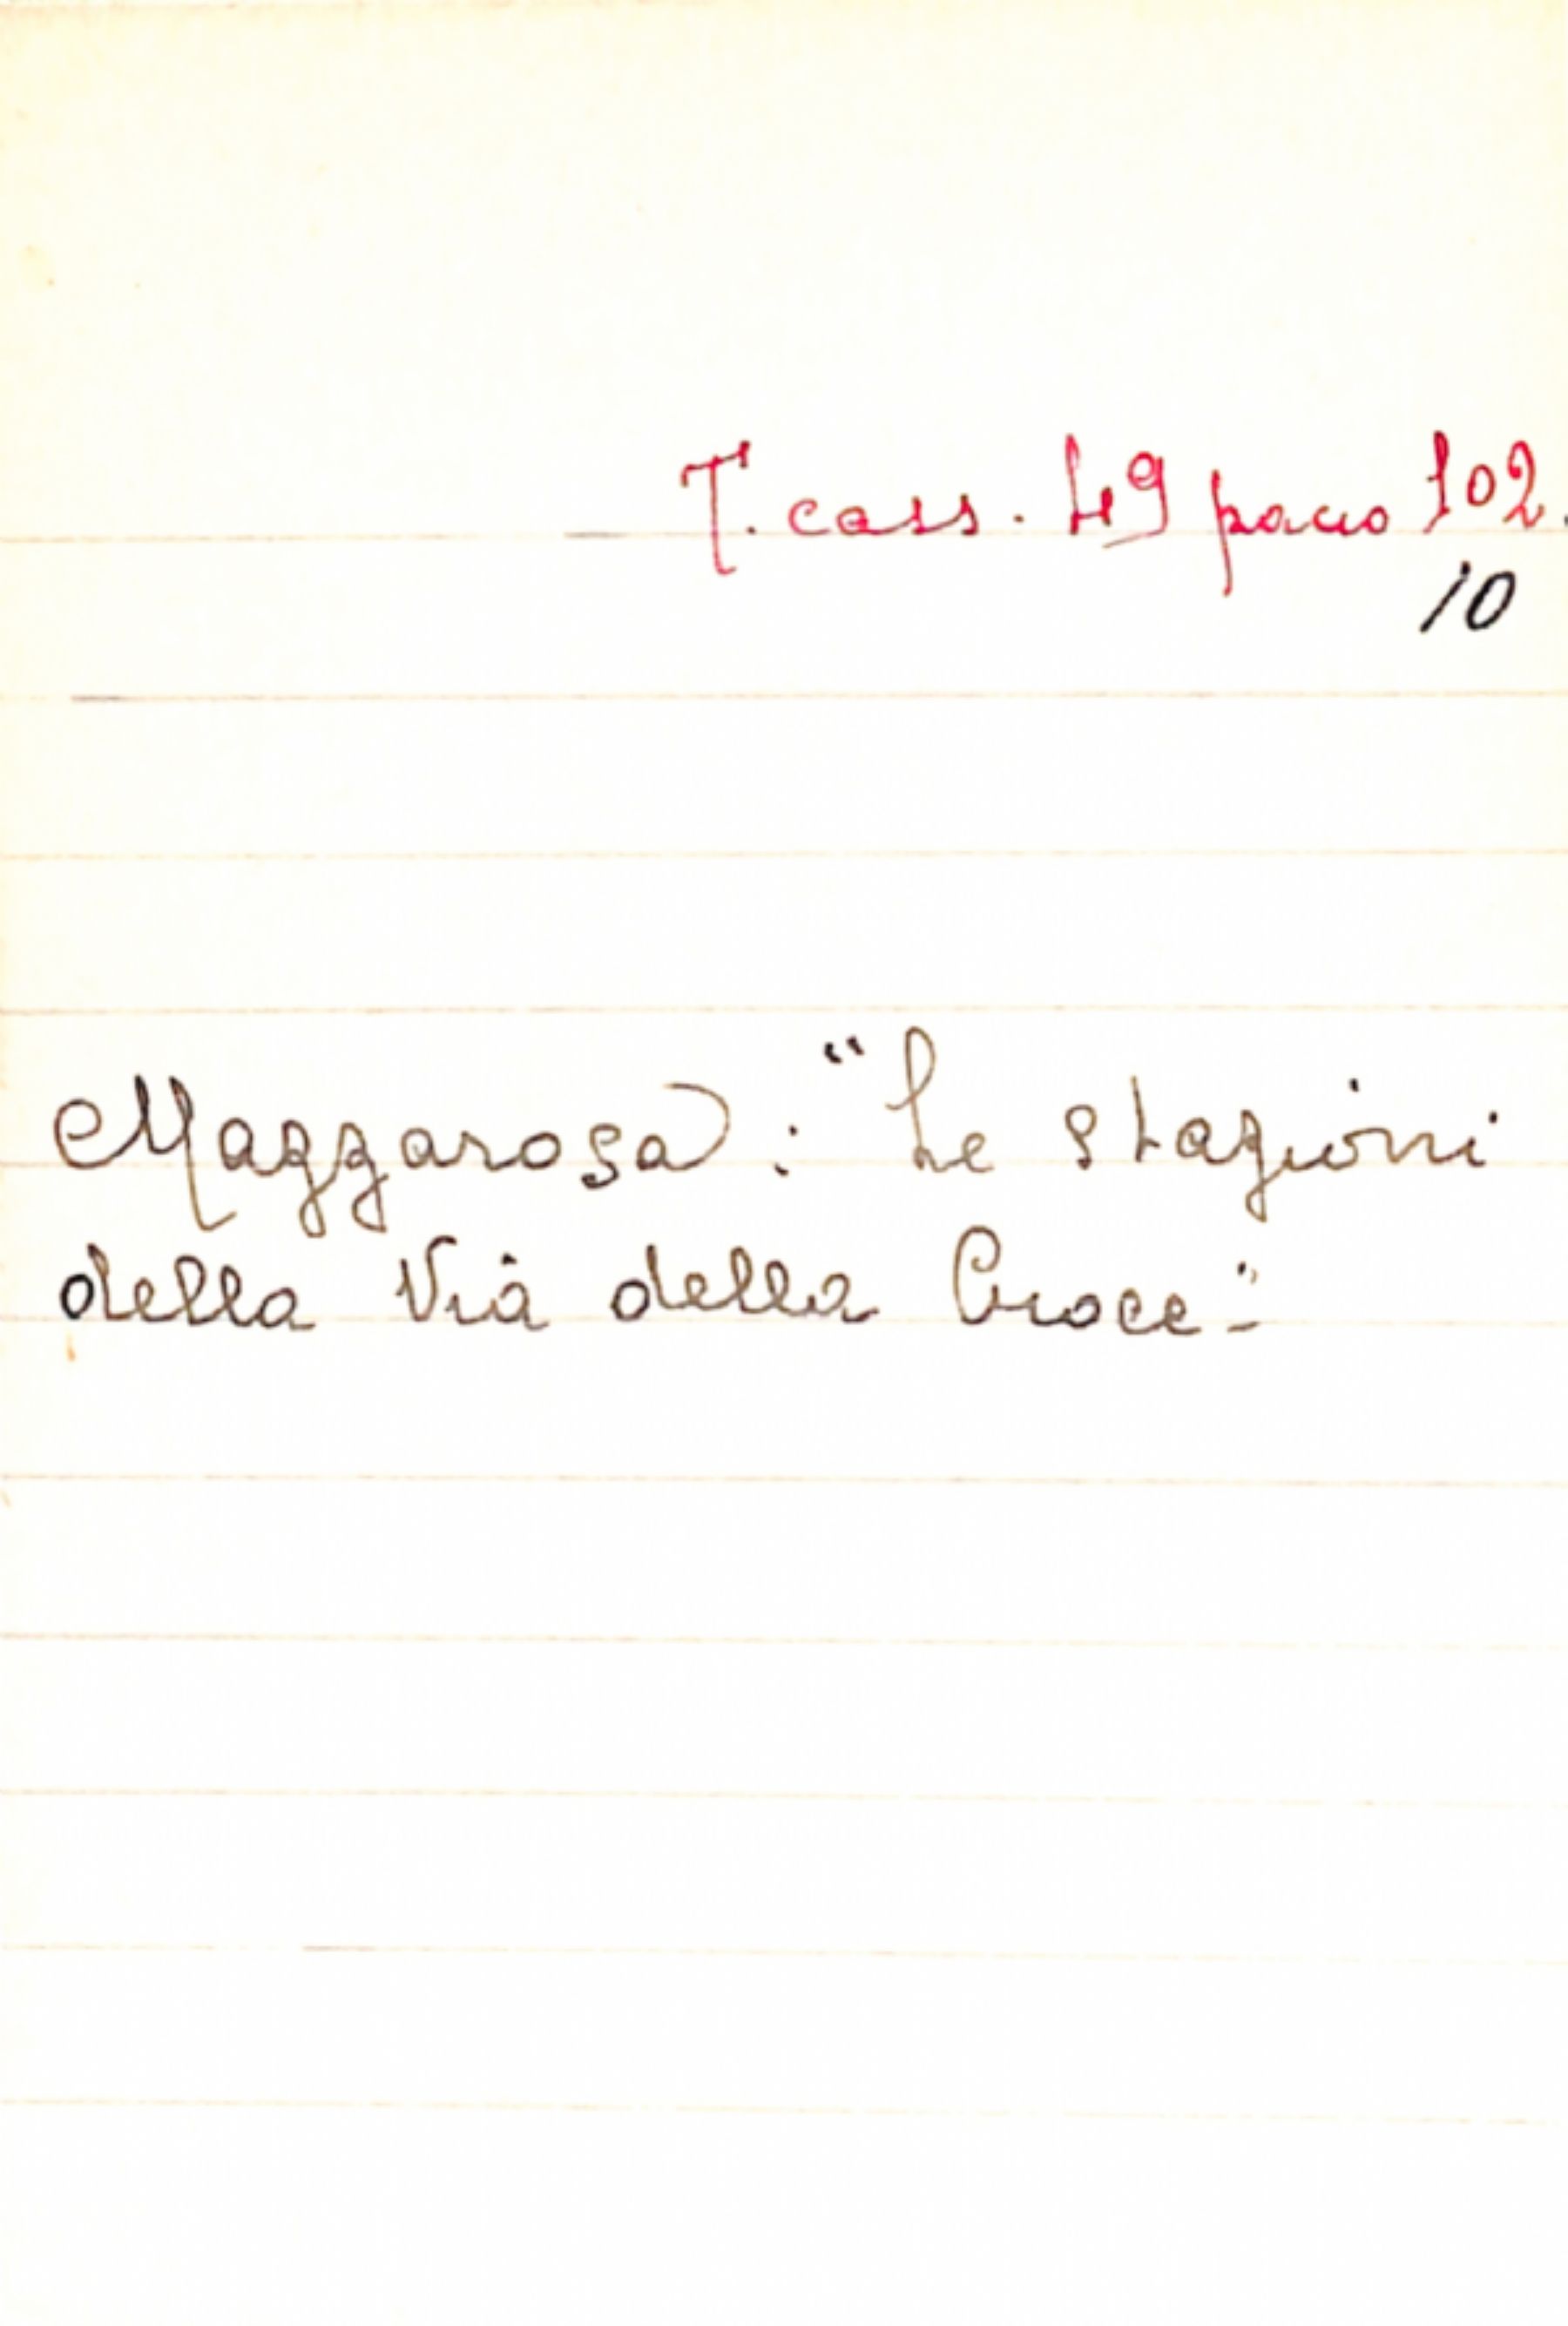 T. cass. 49 pacco 102.
10
Mazzarosa: "Le stazioni
della Via della Croce"-